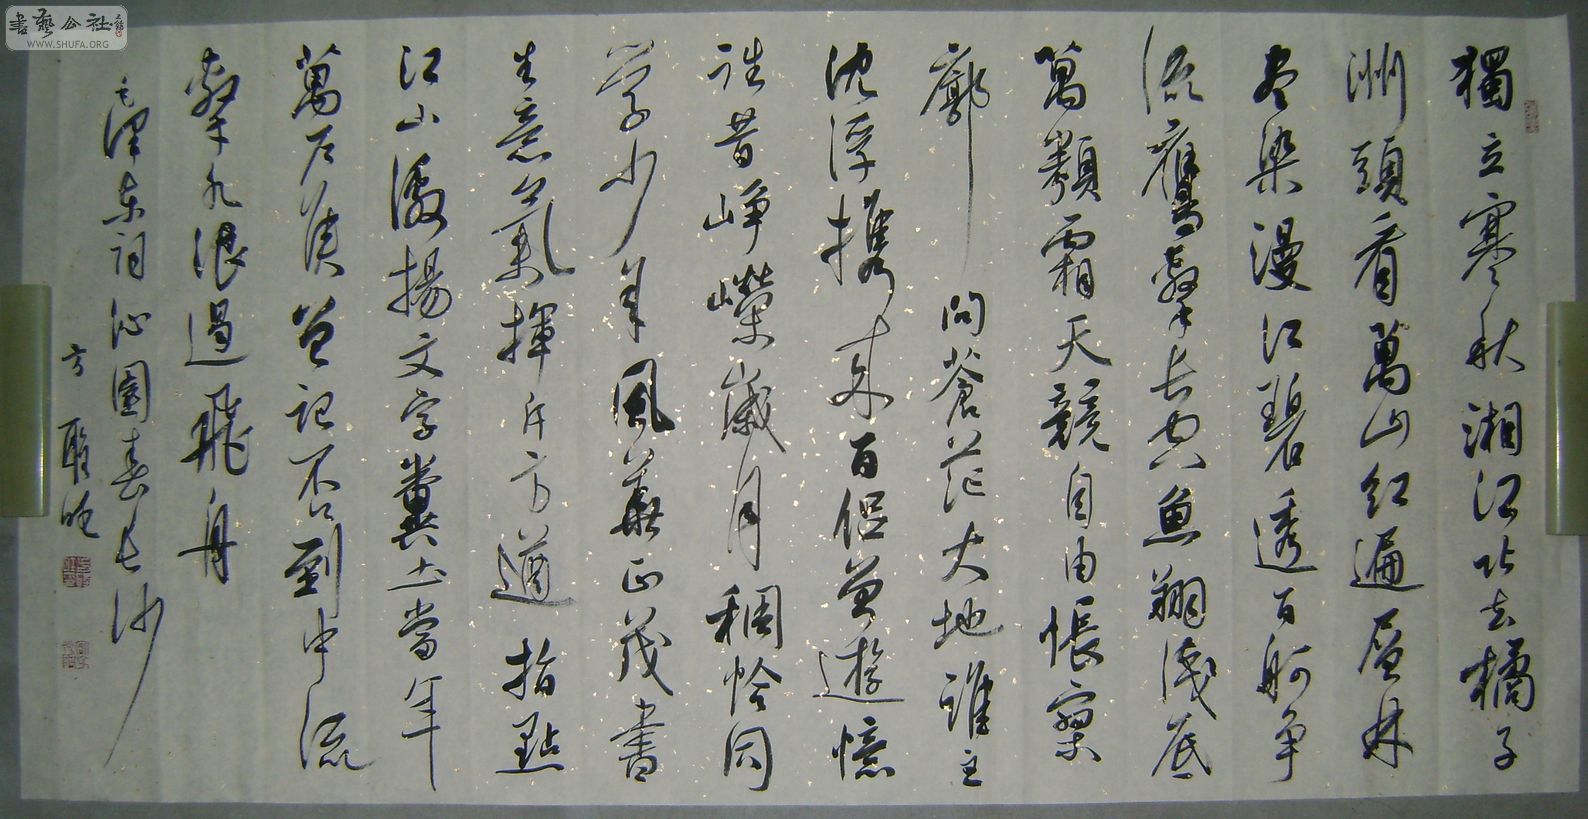 書藝公社
WWW.SHUFA.ORG
獨立寒秋湘江北去橘子
洲頭看萬山紅遍層林
尽染漫江碧透百舸争
流鷹擊長空魚翔淺底
萬類霜天競自由悵寥
廓 問蒼茫大地誰主
沈浮携來百侶曾遊憶
往昔崢嶸歲月稠恰同
學少年風華正茂書
生意氣揮斥方遒指點
江山激揚文字糞土當年
萬户侯曾記否到中流
擊水浪遏飛舟
毛澤東詞沁園春長沙
方